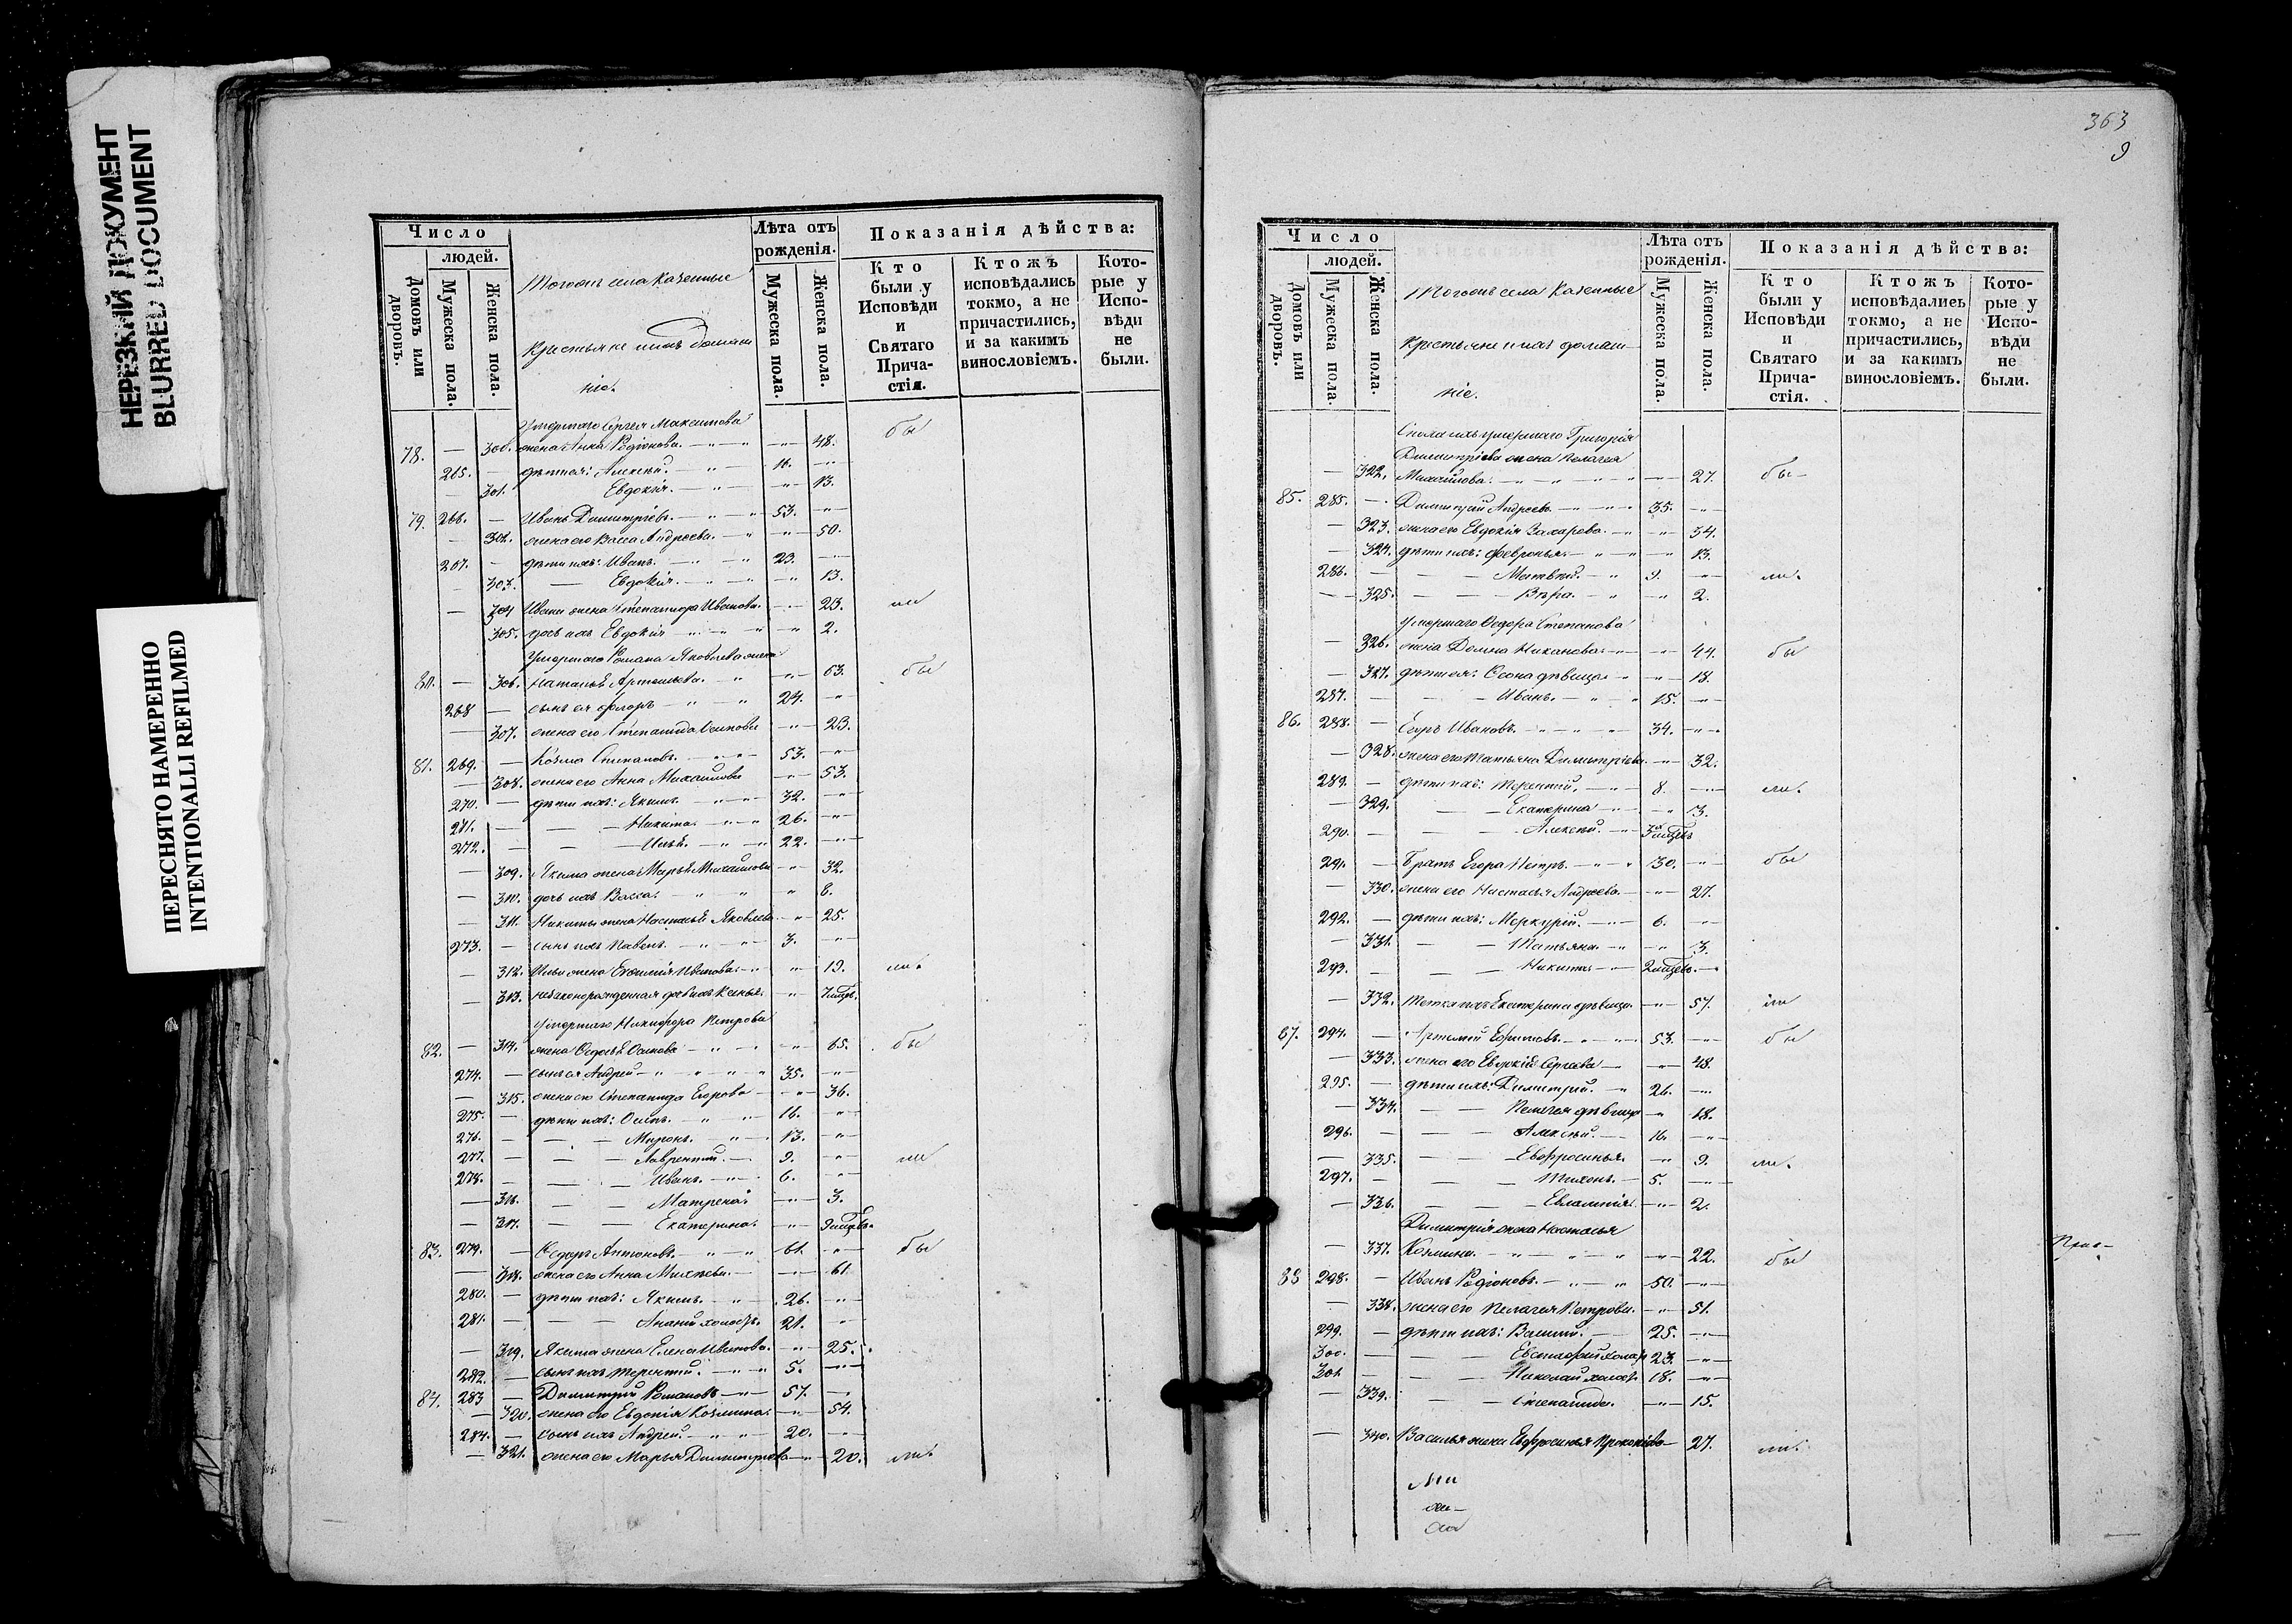 НЕРЕЗКИЙ ДОКУМЕНТ
BLURRED DOCUMENT
ПЕРЕСНЯТО НАМЕРЕННО
INTENTIONALLI REFILMED
Число
людей.
Домовъ или дворовъ.
Мужеска пола.
Женска пола.
Тогожъ села Казенные
Крестьяне и ихъ Домаш
ніе.
Лѣта отъ рожденія.
Мужеска пола.
Женска пола.
Показанія дѣйства:
Кто были у Исповѣди и Святаго Прича-стія.
Ктожъ исповѣдались токмо, а не причастились, и за какимъ винословіемъ.
Кото-рые у Испо-вѣди не были.
Умершаго Сергея Максимова
78. — 300. жена Анна Родіонова. — 48. бы
265. — дѣти ея: Алексѣй. — 16.
— 301. Евдокія. — 13.
79. 266. — Иванъ Димитріевъ. — 53.
— 302. жена его Васса Андреева. — 50.
267. — дѣти ихъ: Иванъ. — 23.
— 303. — Евдокія. — 13.
— 304 Ивана жена Степанида Иванова. — 23. ли
305. дочь ихъ Евдокія — 2.
Умершаго Романа Яковлева жена
80. — 306. Наталья — 63. бы
268 — сынъ ея Фолоръ — 24.
— 307. жена его Степанида Осипова — 23.
81. 269. — Козма Степановъ. — 53.
— 308. жена его Анна Михайлова — 53.
270. — дѣти ихъ: Якимъ. — 32.
271. — Никита. — 26.
272. — Илья. — 22.
— 309. Якима жена Марья Михайлова — 32.
— 310. дочь ихъ Васса. — 6.
— 311. Никиты жена Настасья Яковлева — 25.
273. — сынъ ихъ Павелъ. — 3.
— 312. Ильи жена Евфимія Иванова. — 19. ли.
— 313. незаконорожденная — 7 мцвъ.
Умершаго Никифора Петрова
82. — 314. жена Федосья Осипова — 65. бы
274. — сынъ ея Андрей — 35.
— 315. жена его Степанида Егорова — 36.
275. — дѣти ихъ: Осипъ. — 16.
276. — Миронъ. — 13.
277. — Лаврентій. — 9. ли
278. — Иванъ. — 6.
— 316. — Матрена — 3.
— 317. — Екатерина. — 9 мцвъ.
83. 279. — Федоръ Антоновъ. — 61. бы
— 318. жена его Анна Михѣева. — 61.
280. — дѣти ихъ: Якимъ. — 26.
281. — Ананій холостъ. 21.
— 319. Якима жена Елена Иванова. — 25.
282. — сынъ ихъ Терентій. — 5.
84. 283 — Димитрій Романовъ — 57.
— 320. жена его Евдокія Козмина. — 54.
284. — сынъ ихъ Андрей — 20.
— 321. жена его Марья Димитріева — 20. ли.
363
9
Число
людей.
Домовъ или дворовъ.
Мужеска пола.
Женска пола.
Тогожъ села Казенные
Крестьяне и ихъ домаш—
ніе.
Лѣта отъ рожденія.
Мужеска пола.
Женска пола.
Показанія дѣйства:
Кто были у Исповѣди и Святаго Прича-стія.
Ктожъ исповѣдались токмо, а не причастились, и за какимъ винословіемъ.
Кото-рые у Испо-вѣди не были.
умершаго Григорія
Димитріева жена Пелагея
— 322. Михайлова. — 27. бы —
85. 285. — Димитрій Андреевъ — 35.
— 323. жена его Евдокія Захарова. — 34.
— 324. дѣти ихъ: Февронья. — 13.
286. — Матвѣй. — 9. ли.
— 325. — Вѣра. — 2.
умершаго Федора Степанова
— 326. жена Домна — 44. бы
— 327. дѣти ея: дѣвица — 18.
287. — Иванъ. — 15.
86. 288. — Егоръ Ивановъ. — 34.
— 328. жена его Татьяна Димитріева. — 32.
289. — дѣти ихъ: Терентій. — 8. ли.
— 329. — Екатерина — 3.
290. — Алексѣй. — 3 мцевъ
291. — Братъ Егора Петръ. — 30. бы
— 330. жена его Настасья Андреева. — 27.
292. — дѣти ихъ: Меркурій. — 6.
— 331. — Татьяна. — 3.
293. — Никита. — 2 мцевъ.
— 332. Тетка ихъ Екатерина дѣвица. — 57. ли
87. 294. — Артемій Ефимовъ. — 53. бы
— 333. жена его Евдокія Сергеева — 48.
295. — дѣти ихъ: Димитрій. — 26.
— 334. — Пелагея дѣвица — 18.
296. — Алексѣй. — 16.
— 335. — Евфросинья. — 9. ли.
297. — Тихонъ. — 5.
— 336. — Евлампія. — 2.
Димитрія жена Настасья
— 337. Козмина. — 22. бы
88 298. — Иванъ Родіоновъ. — 50.
— 338. жена его Пелагея Петрова. — 51.
299. — дѣти ихъ: Василій. — 25.
300. — Евстафій холост 23.
301 — Николай холост. 18.
— 339. — Степанида. 15.
— 340. Василья жена Евфросинья Прокопіева — 27. ли.